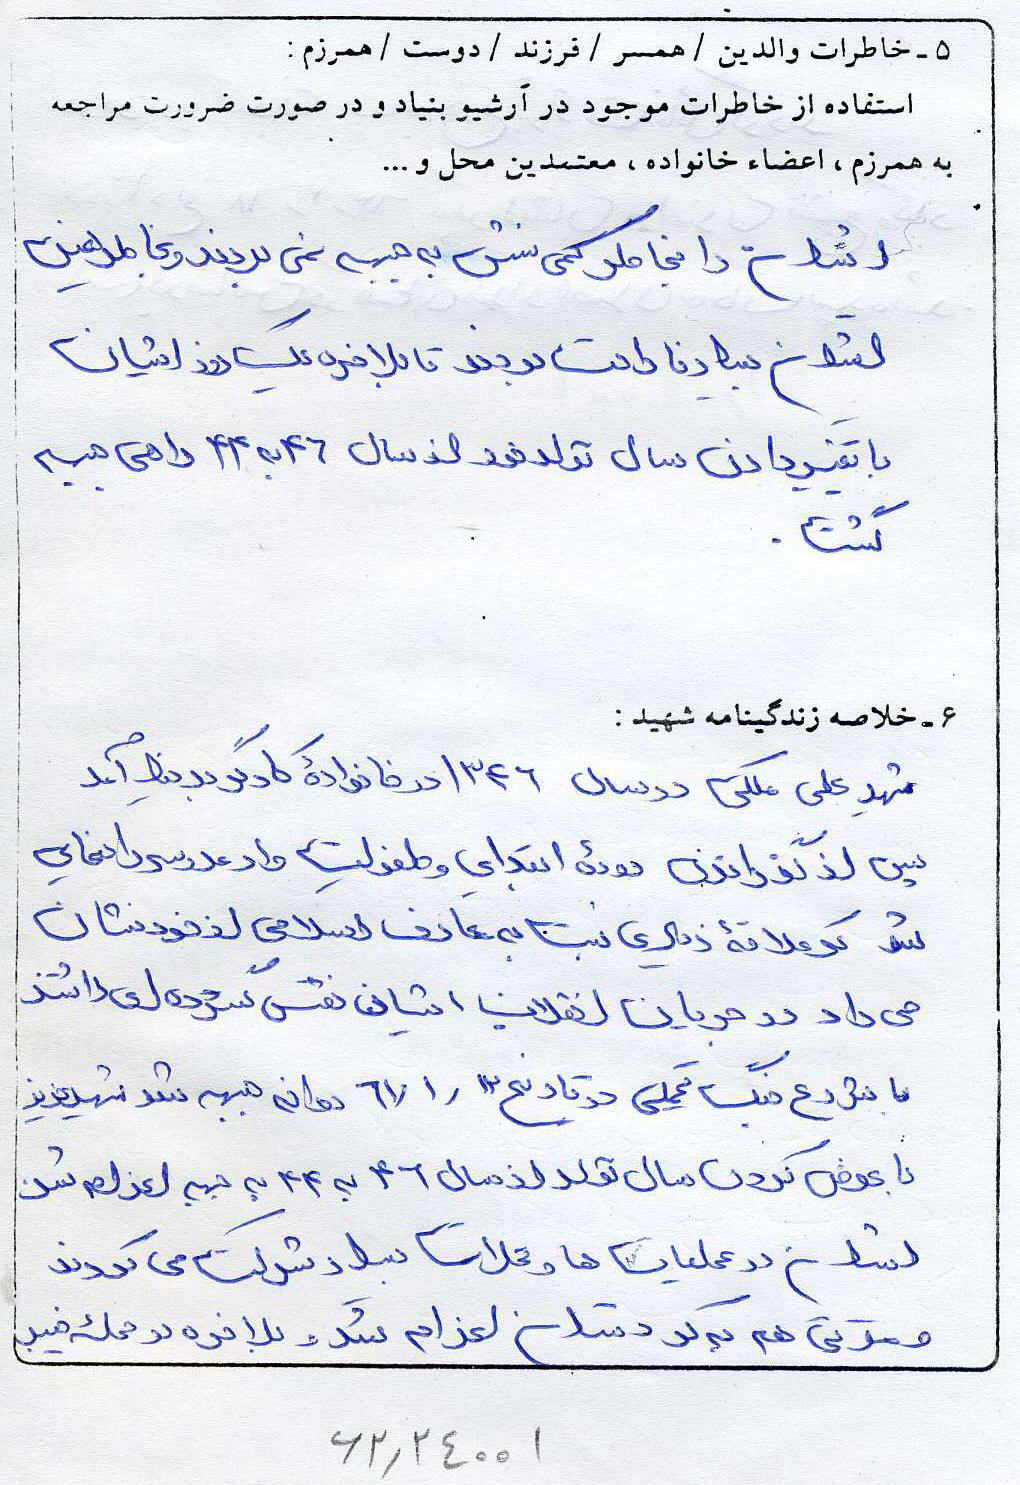 ۵ - خاطرات والدین / همسر / فرزند / دوست / همرزم :
استفاده از خاطرات موجود در آرشیو بنیاد و در صورت ضرورت مراجعه
به همرزم ، اعضاء خانواده ، معتمدین محل و ...
ایشان را بخاطر کمی سنش به جبهه نمی بردند و بخاطر همین
ایشان بسیار ناراحت بودند تا بلاخره یک روز ایشان
با تغییر دادن سال تولد خود از سال ۴۶ به ۴۴ راهی جبهه
گشت .
۶ - خلاصه زندگینامه شهید :
شهید علی ملکی در سال ۱۳۴۶ در خانواده کارگر بدنیا آمد
پس از گذراندن دوره ابتدایی و طفولیت وارد مدرسه راهنمایی
شد که علاقه زیادی نسبت به معارف اسلامی از خود نشان
می داد در جریان انقلاب ایشان نقش گسترده ای داشتند
با شروع جنگ تحمیلی در تاریخ ۶۱/۱/۱۳ روانه جبهه شد شهید عزیز
با عوض کردن سال تولد از سال ۴۶ به ۴۴ به جبهه اعزام شد
ایشان در عملیات ها و حملات بسیار شرکت می کردند
و مدتی هم به کردستان اعزام شد و بلاخره در حمله خیبر
۶۲,۲۴۰۰۱